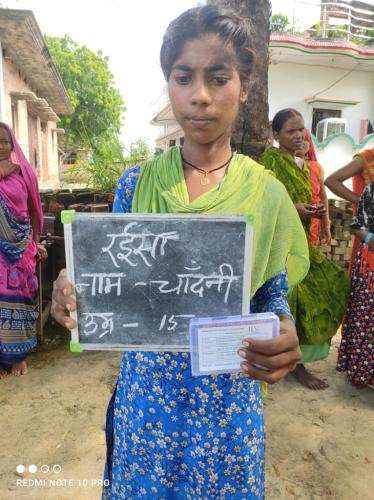 रईसा
नाम - चाँदनी
उम्र - 15
REDMI NOTE 10 PRO